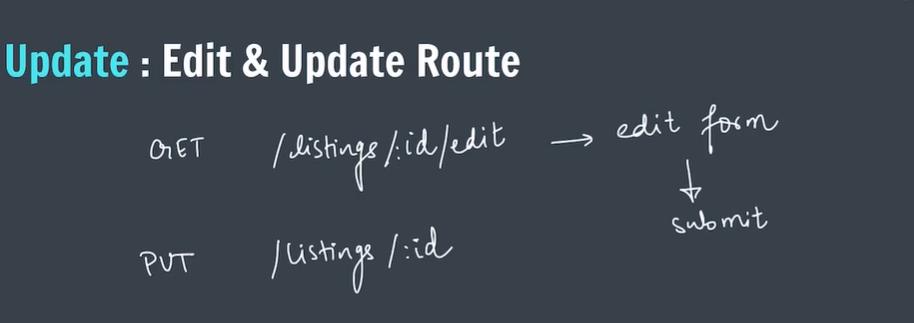 Update : Edit & Update Route
GET /listings/:id/edit → edit form
↓
submit
PUT /listings/:id